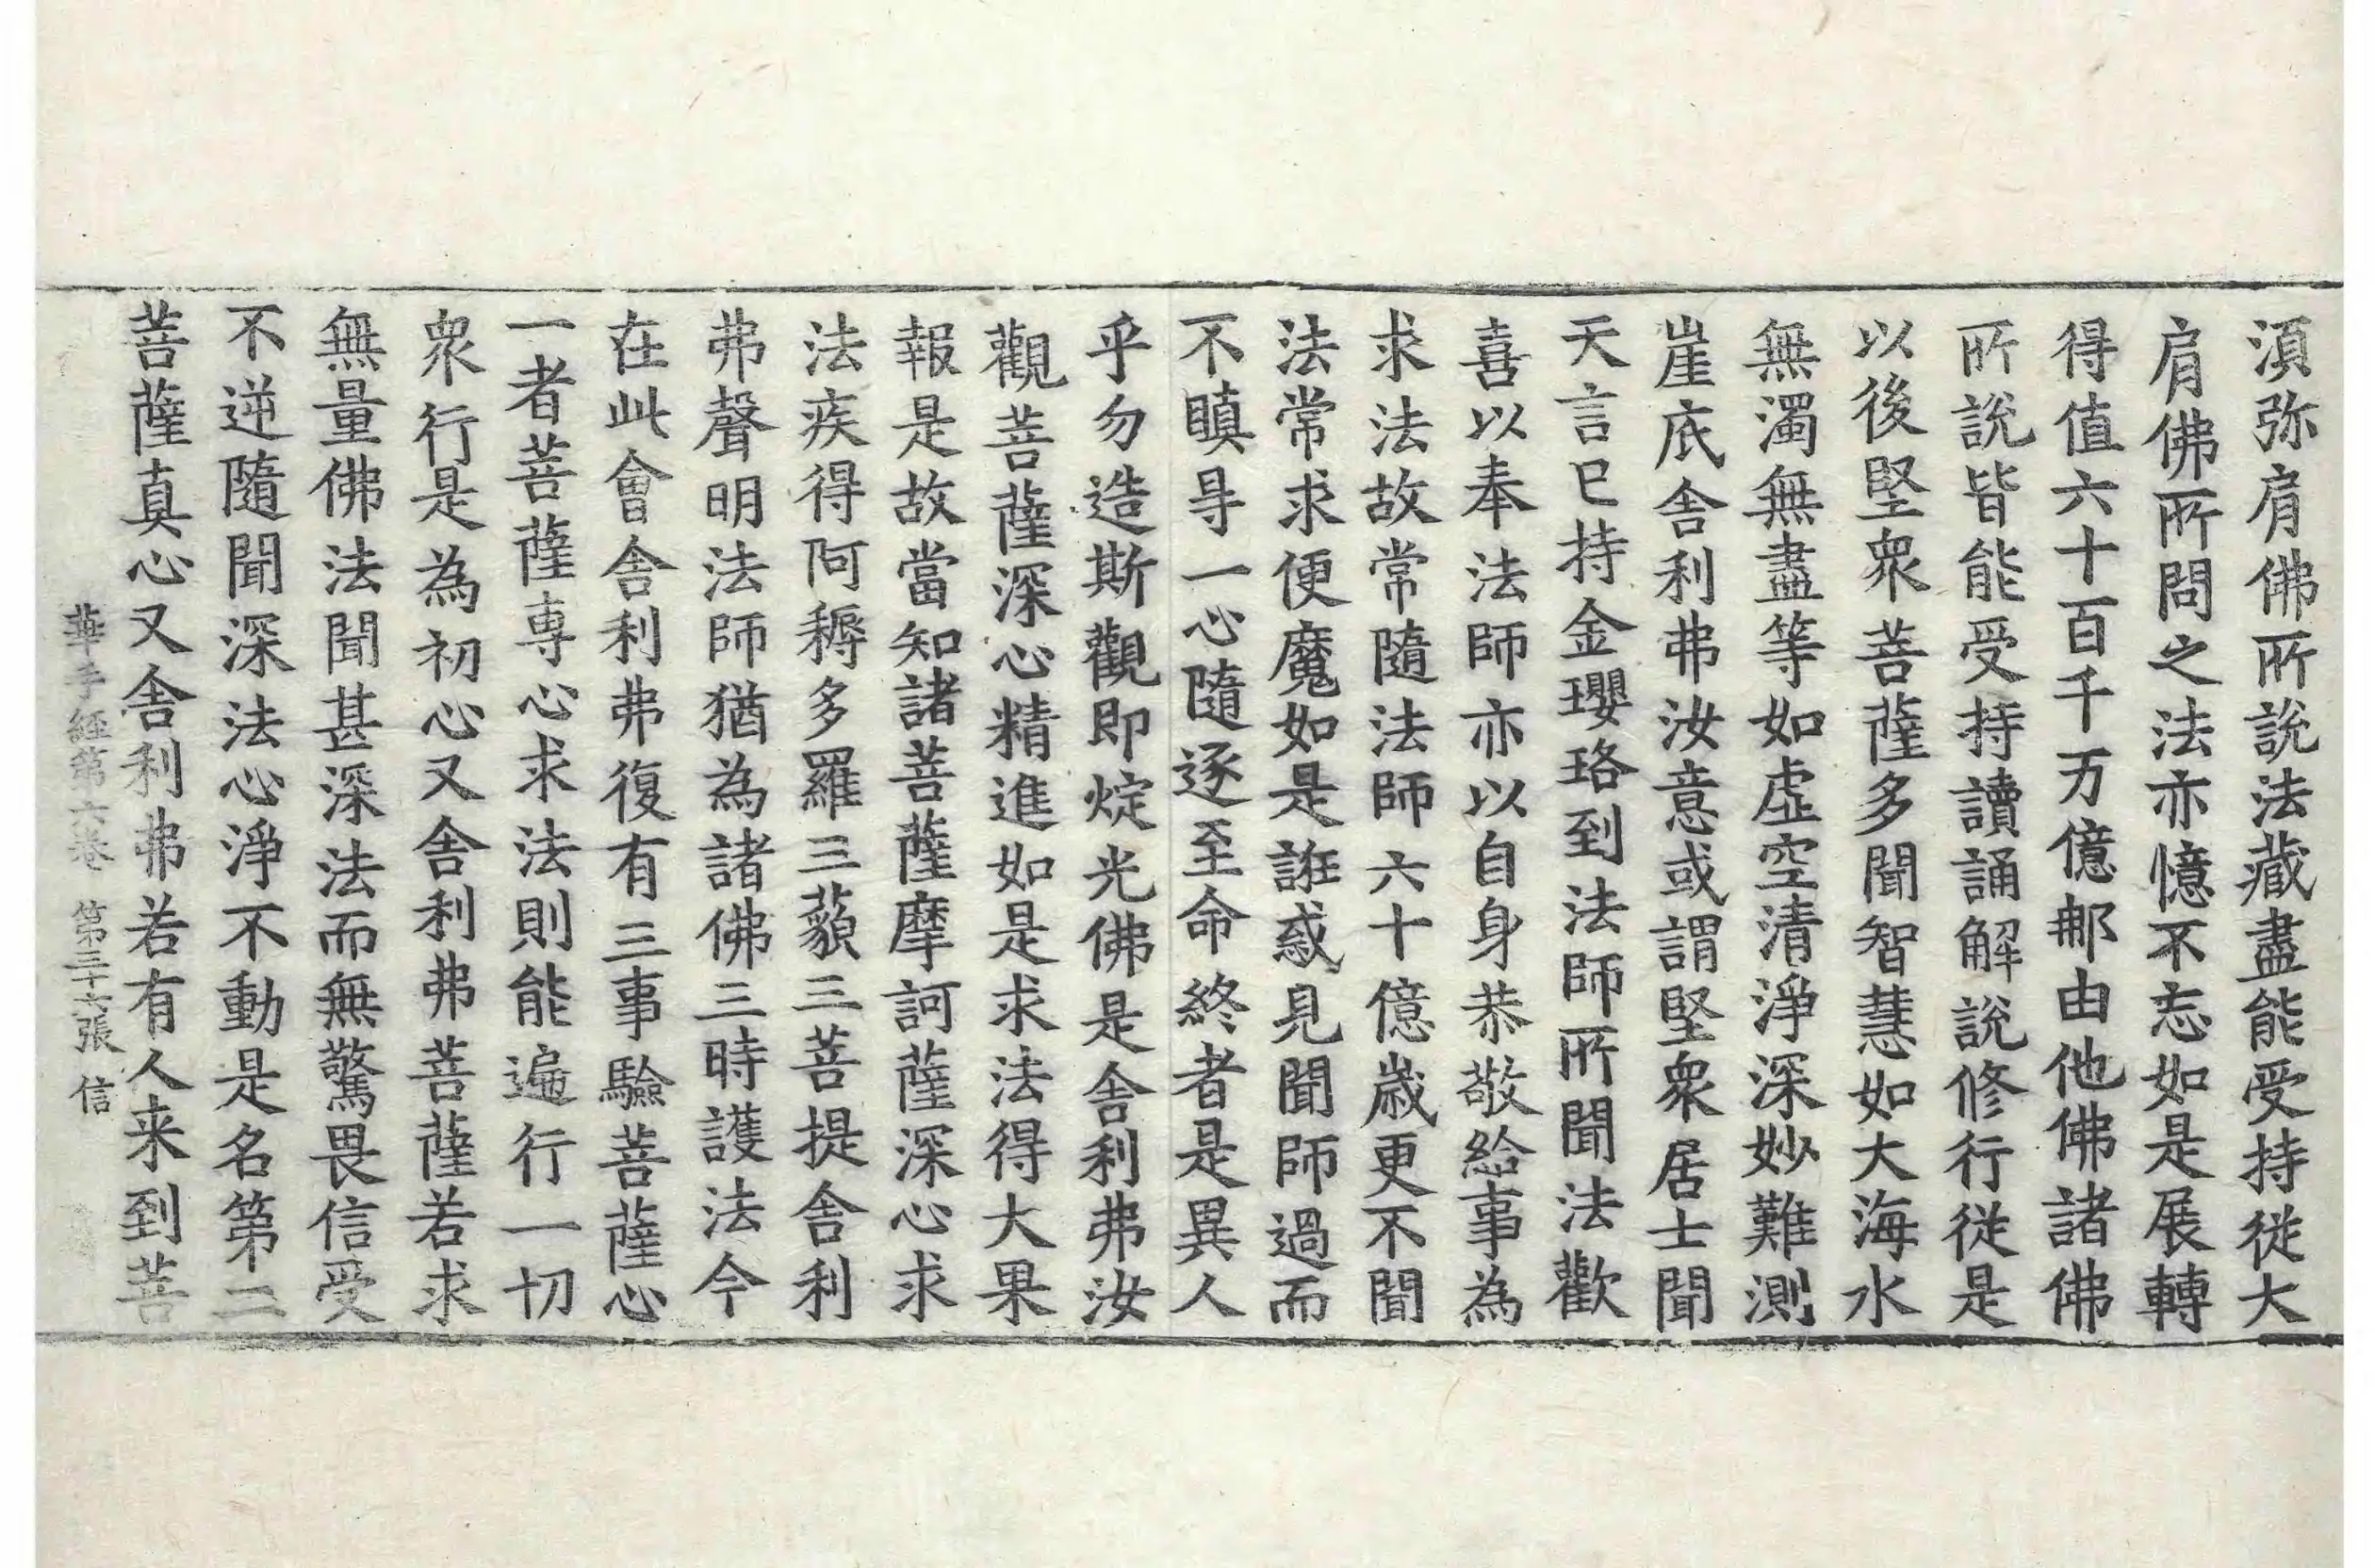 湏弥肩佛所說法藏盡能受持從大
肩佛所問之法亦憶不忘如是展轉
得值六十百千万億那由他佛諸佛
所說皆能受持讀誦解說修行從是
以後堅衆菩薩多聞智慧如大海水
無濁無盡等如虛空清淨深妙難測
崖底舍利弗汝意或謂堅衆居士聞
天言已持金瓔珞到法師所聞法歡
喜以奉法師亦以自身恭敬給事為
求法故常隨法師六十億歲更不聞
法常求便魔如是誑惑見聞師過而
不瞋㝵一心隨逐至命終者是異人
乎勿造斯觀即㝎光佛是舍利弗汝
觀菩薩深心精進如是求法得大果
報是故當知諸菩薩摩訶薩深心求
法疾得阿耨多羅三藐三菩提舍利
弗聲明法師猶為諸佛三時護法今
在此會舍利弗復有三事驗菩薩心
一者菩薩專心求法則能遍行一切
衆行是為初心又舍利弗菩薩若求
無量佛法聞甚深法而無驚畏信受
不逆隨聞深法心淨不動是名第二
菩薩真心又舍利弗若有人来到菩
華手經第六卷　第三十六張　信